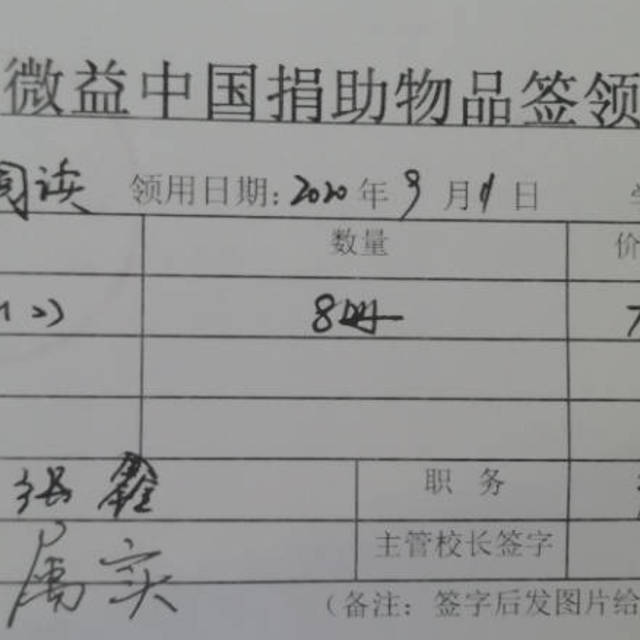 微益中国捐助物品签领
阅读 领用日期: 2020年9月1日
数量 价
(12) 8册
张鑫 职 务
主管校长签字
属实
(备注: 签字后发图片给